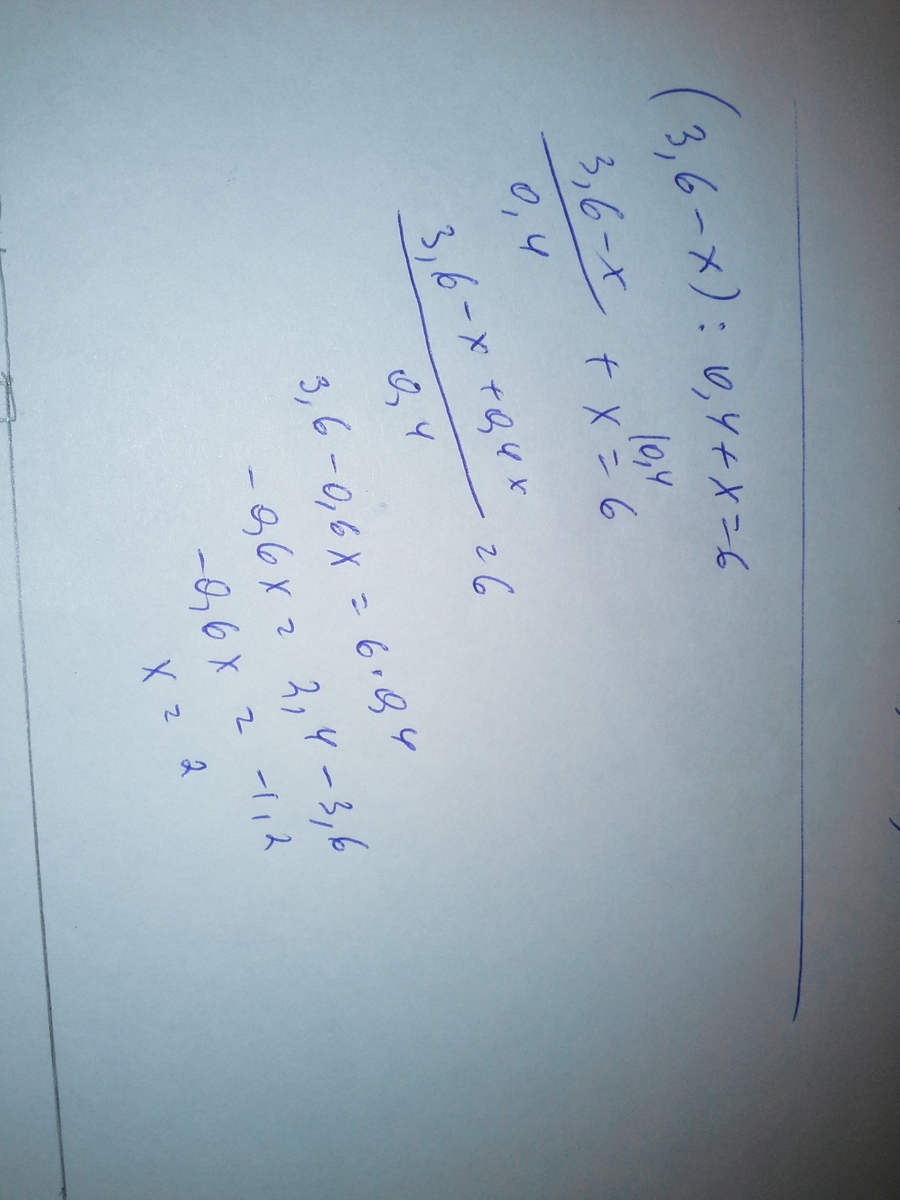 (3,6-x):0,4+x=6
3,6-x/0,4 + x|0,4 = 6
3,6-x+0,4x/0,4 = 6
3,6-0,6x=6·0,4
-0,6x=2,4-3,6
-0,6x=-1,2
x=2